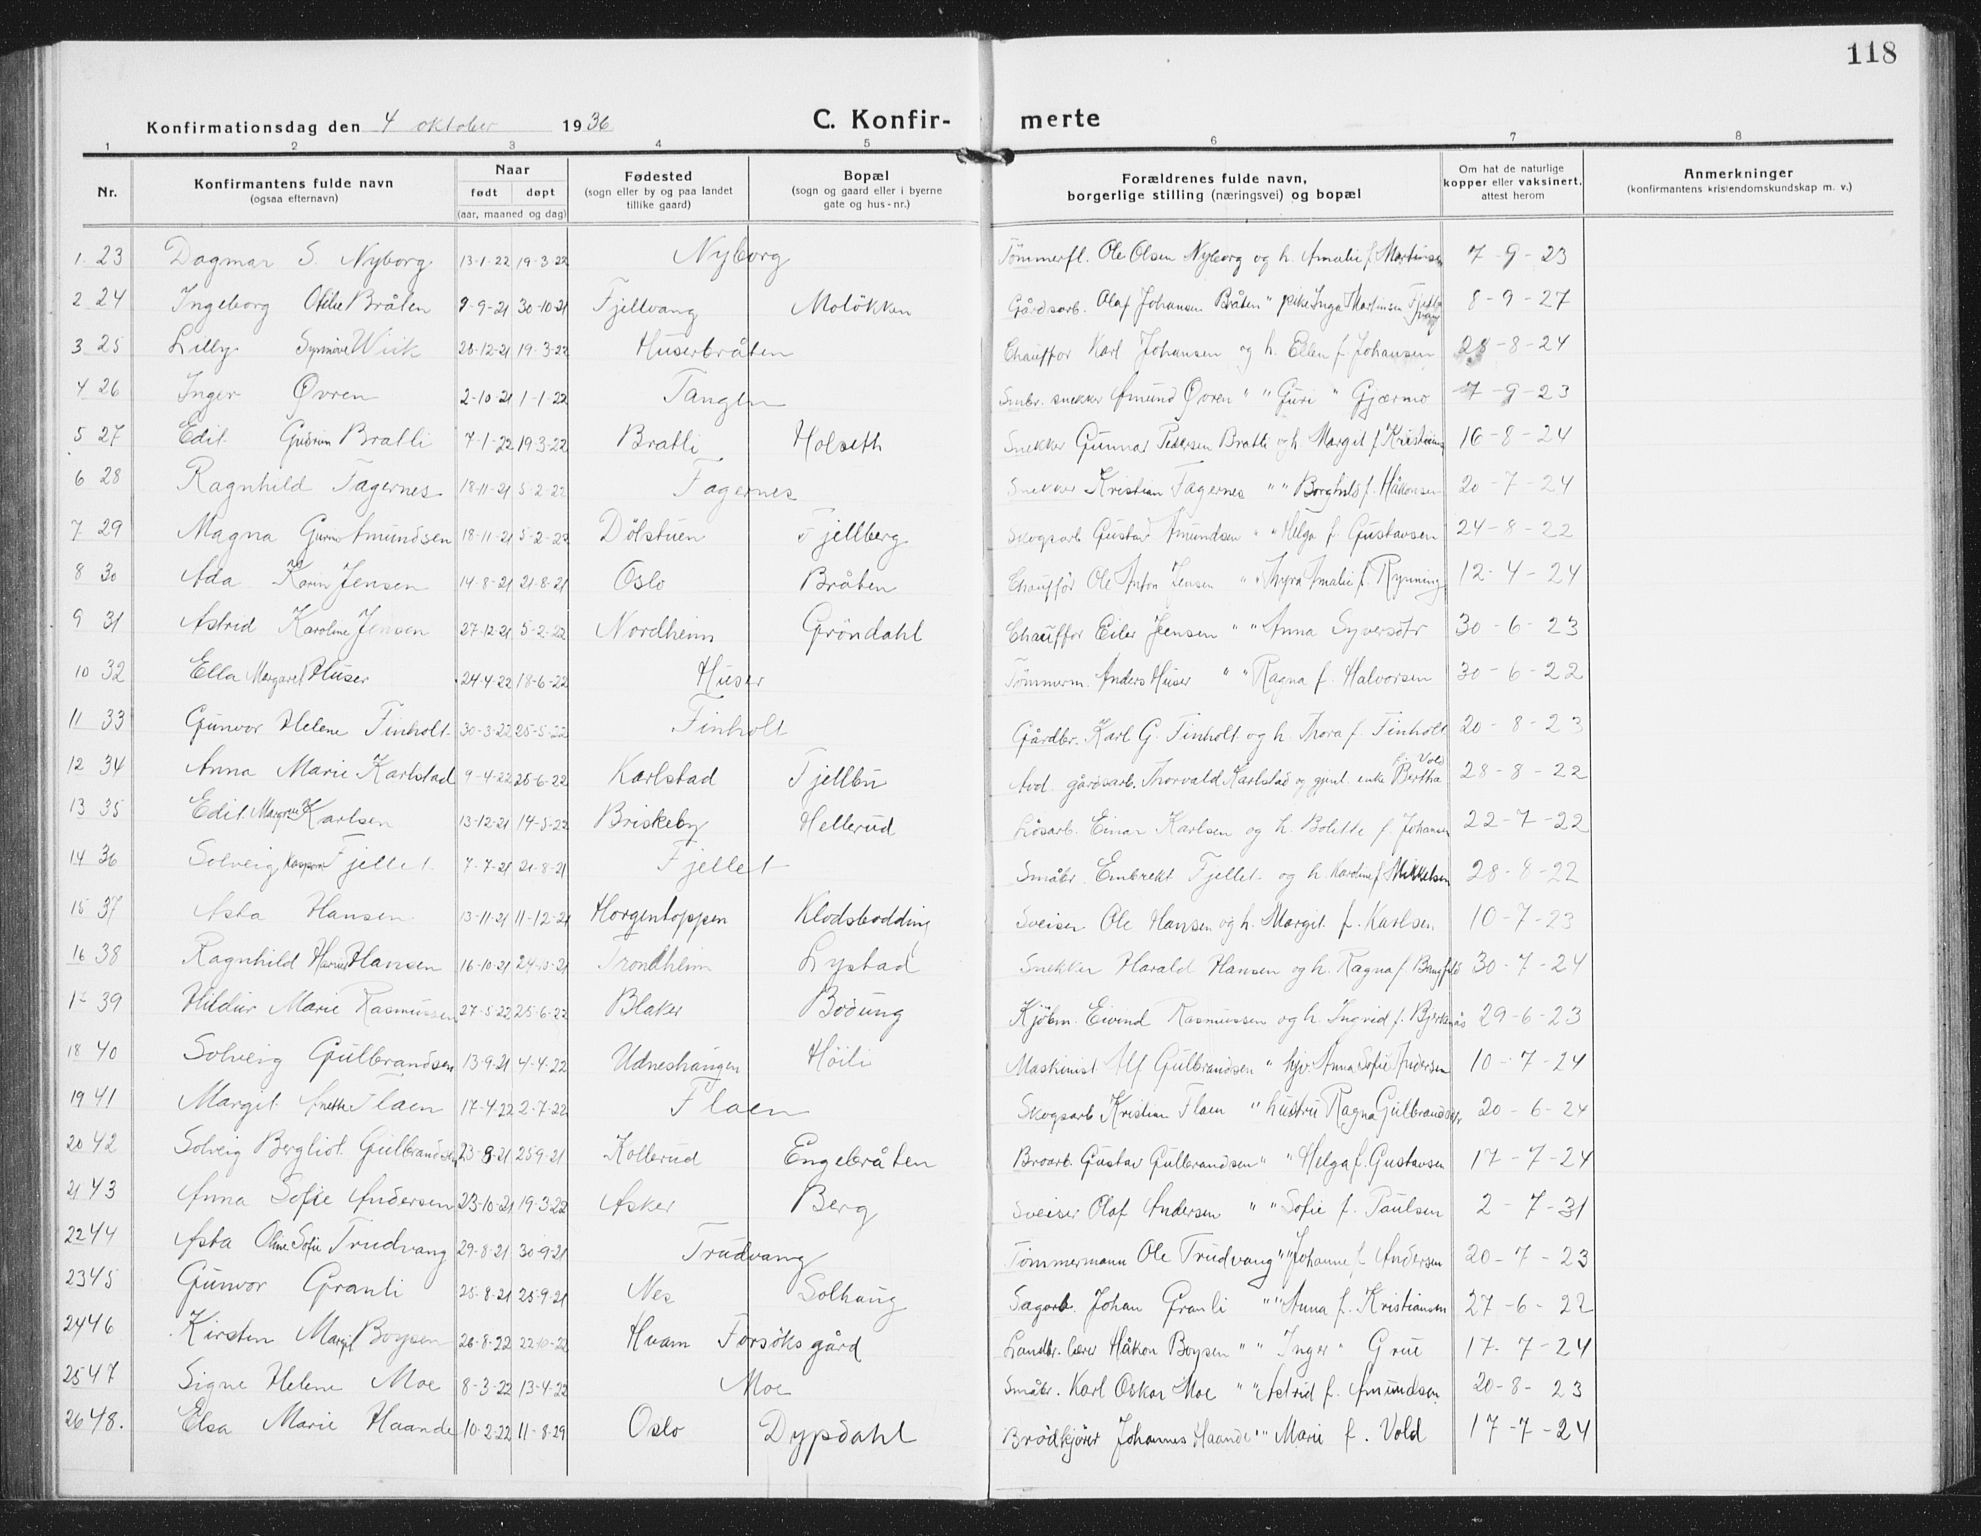 118
Konfirmationsdag den 4 oktober 1936 C. Konfir- merte
1 2 3 4 5 6 7 8
Nr. Konfirmantens fulde navn (ogsaa efternavn) Naar født døpt (aar, maaned og dag) Fødested (sogn eller by og paa landet tillike gaard) Bopæl (sogn og gaard eller i byerne gate og hus-nr.) Forældrenes fulde navn, borgerlige stilling (næringsvei) og bopæl Om hat de naturlige kopper eller vaksinert, attest herom Anmerkninger (konfirmantens kristendomskundskap m. v.)
1. 23 Dagmar S. Nyborg 13-1-22 19-3-22 Nyborg Tömmerfl. Ole Olsen Nyborg og h. Amalie f. Martinsen 7-9-23
2 24 Ingeborg Otilie Bråten 9-9-21 30-10-21 Fjellvang Molökken Gårdsarb. Olaf Johansen Bråten " pike Inga Martinsen Fjellvang 8-9-27
3 25 Lilly Synnöve Wiik 20-12-21 19-3-22 Huserbråten Chauffør Karl Johansen og h. Ellen f. Johansen -8-24
4 26 Inger Övren 2-10-21 1-1-22 Tangen Småbr. snekker Amund Övren " " Guri " Gjærmo 7-9-23
5 27 Edit Gudrun Bratli 7-1-22 19-3-22 Bratli Holseth Snekker Gunnar Pedersen Bratli og h. Margit f. Kristians 16-8-24
6 28 Ragnhild Fagernes 18-11-21 5-2-22 Fagernes Snekker Kristian Fagernes " " Borghild f. Håkonsen 20-7-24
7 29 Magna Amundsen 18-11-21 5-2-22 Dölstuen Fjellberg Skogsarb. Gustav Amundsen " " Helga f. Gustavsen 24-8-22
8 30 Ada Karin Jensen 14-8-21 21-8-21 Oslo Bråten Chauffør Ole Anton Jensen " " Thyra Amalie f. Rynning 12-4-24
9 31 Astrid Karoline Jensen 27-12-21 5-2-22 Nordheim Gröndahl Chauffør Eiler Jensen " " Anna Syversdtr 30-6-23
10 32 Ella Margaret Huser 24-4-22 18-6-22 Huser Tömmerm. Anders Huser " " Ragna f. Halvorsen 30-6-22
11 33 Gunvor Helene Finholt 30-3-22 25-5-22 Finholt Gårdbr. Karl G. Finholt og h. Thora f. Finholt 20-8-23
12 34 Anna Marie Karlstad 9-4-22 25-6-22 Karlstad Fjellbu Avd. gårdsarb. Thorvald Karlstad og gjenl. enke Bertha f. Vold 28-8-22
13 35 Edit Margrete Karlsen 13-12-21 14-5-22 Briskeby Hellerud Lösarb. Einar Karlsen og h. Bolette f. Johansen 22-7-22
14 36 Solveig Fjellet 7-7-21 21-8-21 Fjellet Småbr. Embrekt Fjellet og h. Karoline f. Mikkelsen 28-8-22
15 37 Asta Hansen 13-11-21 11-12-21 Horgentoppen Klodsbodding Sveiser Ole Hansen og h. Margit f. Karlsen 10-7-23
16 38 Ragnhild Hansen 16-10-21 24-10-21 Trondheim Lystad Snekker Harald Hansen og h. Ragna f. 30-7-24
17 39 Hildur Marie Rasmussen 27-5-22 25-6-22 Blaker Bodung Kjöbm. Eivind Rasmussen og h. Ingrid f. Bjerknäs 29-6-23
18 40 Solveig Gulbrandsen 13-9-21 4-4-22 Udneshaugen Höili Maskinist Alf Gulbrandsen " Anna Sofie Andersen 10-7-24
19 41 Margit Anette Flaen 17-4-22 2-7-22 Flaen Skogsarb Kristian Flaen " hustru Ragna Gulbrandsdtr 20-6-24
20 42 Solveig Bergliot Gulbrandsen 23-8-21 25-9-21 Kollerud Engebråten Broarb. Gustav Gulbrandsen " " Helga f. Gustavsen 17-7-24
21 43 Anna Sofie Andersen 23-10-21 19-3-22 Asker Berg Sveiser Olaf Andersen " " Sofie f. Paulsen 2-7-31
22 44 Asta Oline Sofie Trudvang 29-8-21 30-9-21 Trudvang Tömmermann Ole Trudvang " " Johanne f. Andersen 20-7-23
23 45 Gunvor Granli 25-8-21 25-9-21 Nes Solhaug Sagarb. Johan Granli " " Anna f. Kristiansen 27-6-22
24 46 Kirsten Margit Boysen 26-8-22 22-10-22 Hvam Forsöksgård Landbr. lærer Håkon Boysen " " Inger " Grue 17-7-24
25 47 Signe Helene Moe 8-3-22 13-4-22 Moe Småbr. Karl Oskar Moe " " Astrid f. Amundsen. 20-8-23
26 48. Elsa Marie Haande 10-2-22 11-8-29 Oslo Dypdahl Brödkjörer Johannes Haande " " Marie f. Vold 17-7-24